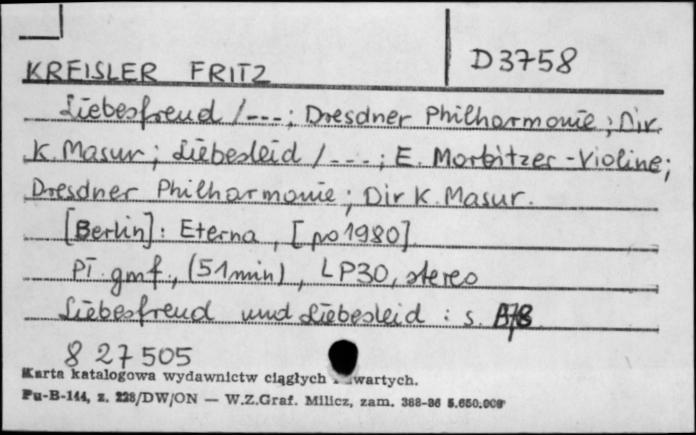 KREISLER FRITZ
D3758
Liebesfreud /---; Dresdner Philharmonie; Dir.
K. Masur; Liebesleid /---; E. Morbitzer - Violine;
Dresdner Philharmonie; Dir K. Masur.
[Berlin]: Eterna, [po1980]
Pł. gmf., (51min), LP30, stereo
Liebesfreud und Liebesleid : s.
8 27505
Karta katalogowa wydawnictw ciągłych
Pu-B-144, z. 228/DW/ON — W.Z.Graf. Milicz, zam. 388-86 5.650.000